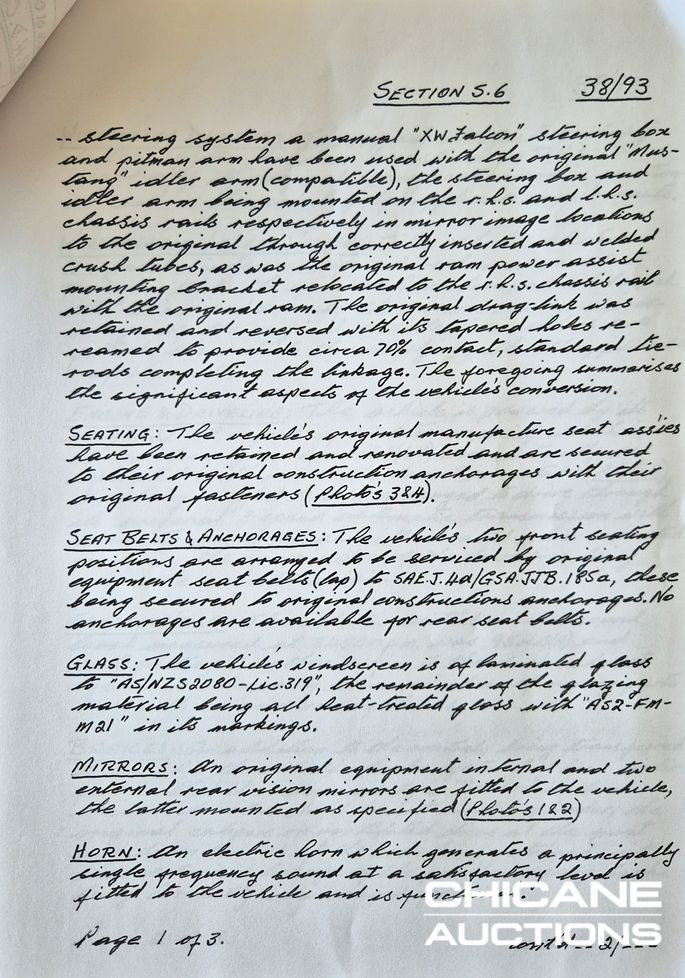 SECTION 5.6 38/93
-- steering system a manual "XW Falcon" steering box
and pitman arm have been used with the original "Mus-
tang" idler arm (compatible), the steering box and
idler arm being mounted on the r.h.s. and l.h.s.
chassis rails respectively in mirror image locations
to the original through correctly inserted and welded
crush tubes, as was the original ram power assist
mounting bracket relocated to the r.h.s. chassis rail
with the original ram. The original drag-link was
retained and reversed with its tapered holes re-
reamed to provide circa 70% contact, standard tie-
rods completing the linkage. The foregoing summarises
the significant aspects of the vehicle's conversion.
SEATING: The vehicle's original manufacture seat ass'ies
have been retained and renovated and are secured
to their original construction anchorages with their
original fasteners (Photo's 3&4).
SEAT BELTS & ANCHORAGES: The vehicle's two front seating
positions are arranged to be serviced by original
equipment seat belts (lap) to SAE.J.4a/GSA.JJB.185a, these
being secured to original constructions anchorages. No
anchorages are available for rear seat belts.
GLASS: The vehicle's windscreen is of laminated glass
to "AS/NZS2080-Lic.319", the remainder of the glazing
material being all heat-treated glass with "AS2-FM-
M21" in its markings.
MIRRORS: An original equipment internal and two
external rear vision mirrors are fitted to the vehicle,
the latter mounted as specified (Photo's 1&2)
HORN: An electric horn which generates a principally
single frequency sound at a satisfactory level is
fitted to the vehicle and is
Page 1 of 3. cont'd -- 2/---
CHICANE
AUCTIONS